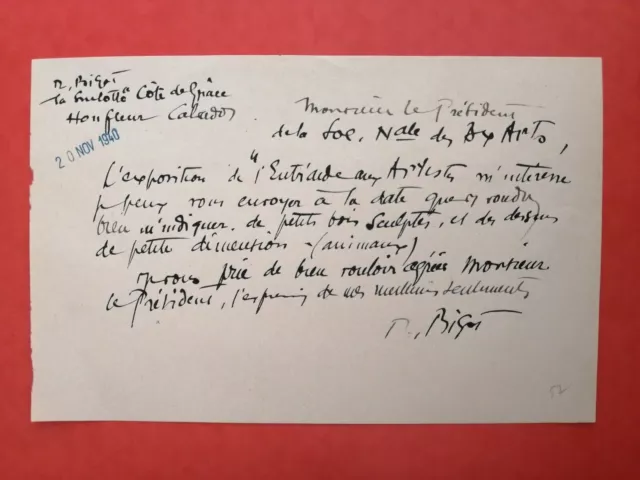 R. Bigot
"la Hulotte" Côte de Grâce
Honfleur Calvados
20 NOV 1940
Monsieur le Président
de la Soc. Nale des Bx Arts,
L'exposition de "l'Entr'aide aux Artistes m'intéresse
je peux vous envoyer à la date que vs voudrez
bien m'indiquer. de petits bois sculptés, et des dessins
de petite dimension - (animaux)
je vous prie de bien vouloir agréer Monsieur
le Président, l'expression de mes meilleurs sentiments
R. Bigot
52